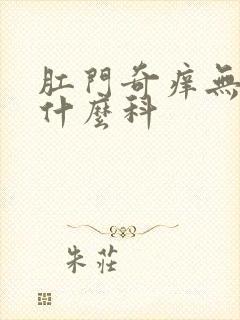 肛門奇痒無
什麼科
朱莊